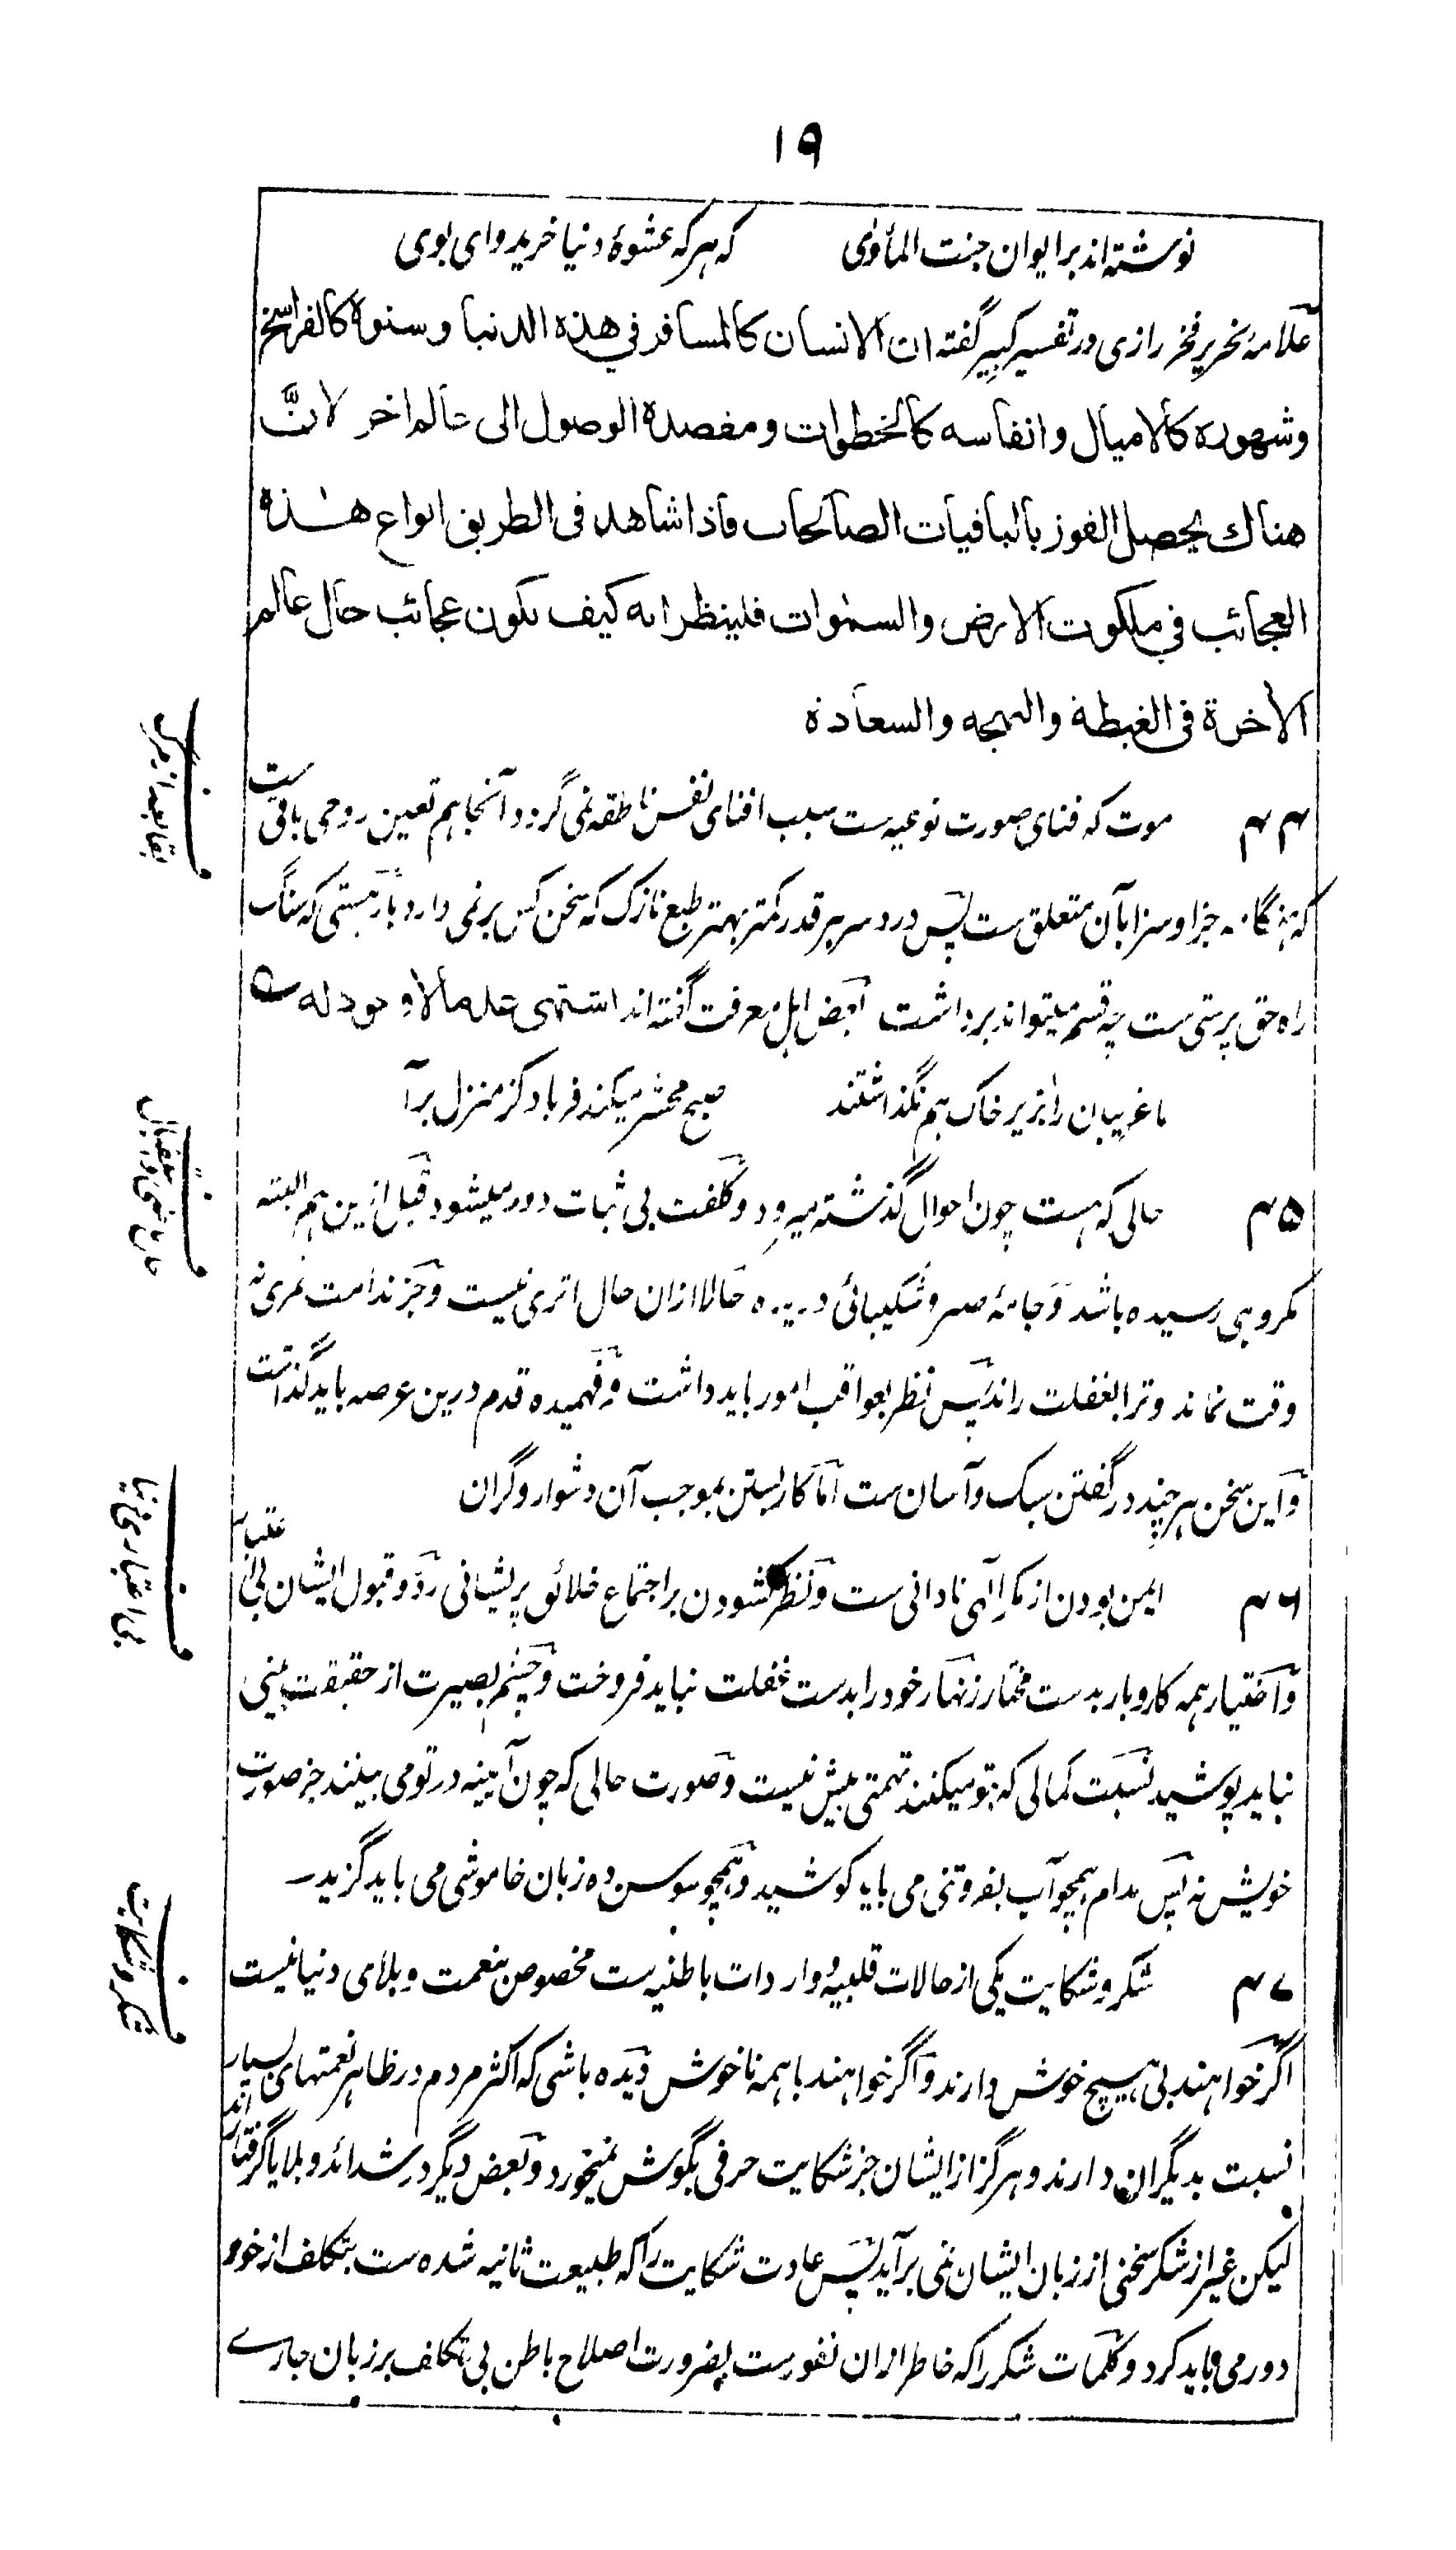 ۱۹
نوشته اند بر ایوان جنت المأوی که هر که عشوهٔ دنیا خرید وای بوی
علامهٔ نحریر فخر رازی در تفسیر کبیر گفته ان الانسان کالمسافر فی هذه الدنیا وسنوه کالفراسخ
وشهوره کالامیال وانفاسه کالخطوات ومقصده الوصول الی عالم اخر لانَّ
هناك یحصل الفوز بالباقیات الصالحات فاذا شاهد فی الطریق انواع هذه
العجائب فی ملکوت الارض والسموات فلینظر انه کیف یکون عجائب حال عالم
الاخرة فی الغبطة والبهجه والسعادة
۴۴ موت که فنای صورت نوعیه ست سبب افنای نفس ناطقه نمی گردد آنجا هم تعین روحی باقی ست
که هنگامه جزا و سزا بآن متعلق ست پس درد سر هر قدر کمتر بهتر طبع نازک که سخن کس بر نمی دارد بار هستی که سنگ
راه حق پرستی ست چه قسم میتواند برداشت بعض اهل معرفت گفته اند اشتهی عدما لا وجود له
ما غریبان را بزیر خاک هم نگذاشتند صبح محشر میکند فریاد کز منزل برآ
۴۵ حالی که هست چون احوال گذشته میرود و کلفت بی ثبات دور میشود قبل ازین هم البته
مکروهی رسیده باشد و جامهٔ صبر و شکیبائی دریده حالا ازان حال اثری نیست و جز ندامت ثمری نه
وقت نماند و ترا بغفلت راند پس نظر بعواقب امور باید داشت و فهمیده قدم درین عرصه باید گذاشت
و این سخن هر چند در گفتن سبک و آسان ست اما کار بستن بموجب آن دشوار و گران
۴۶ ایمن بودن از مکر الهی نادانی ست و نظر کشودن بر اجتماع خلائق پریشانی ردّ و قبول ایشان بی اعتبار
و اختیار همه کار و بار بدست مختار زنهار خود را بدست غفلت نباید فروخت و چشم بصیرت از حقیقت بینی
نباید پوشید نسبت کمالی که بتو میکنند تهمتی بیش نیست و صورت حالی که چون آیینه در تو می بینند جز صورت
خویش نه پس مدام همچو آب بفروتنی می باید کوشید و همچو سوسن ده زبان خاموشی می باید گزید
۴۷ شکر و شکایت یکی از حالات قلبیه و واردات باطنیه ست مخصوص بنعمت و بلای دنیا نیست
اگر خواهند بی هیچ خوش دارند و اگر خواهند با همه ناخوش دیده باشی که اکثر مردم در ظاهر نعمتهای بسیار
نسبت بدیگران دارند و هرگز از ایشان جز شکایت حرفی بگوش نمیخورد و بعض دیگر در شدائد و بلایا گرفتار اند
لیکن غیر از شکر سخنی از زبان ایشان نمی برآید پس عادت شکایت را که طبیعت ثانیه شده ست بتکلف از خود
دور می باید کرد و کلمات شکر را که خاطر ازان نفورست بضرورت اصلاح باطن بی تکلف بر زبان جاری
بقا بعد از مرگ
بی اعتباری دنیا
شکر و شکایت